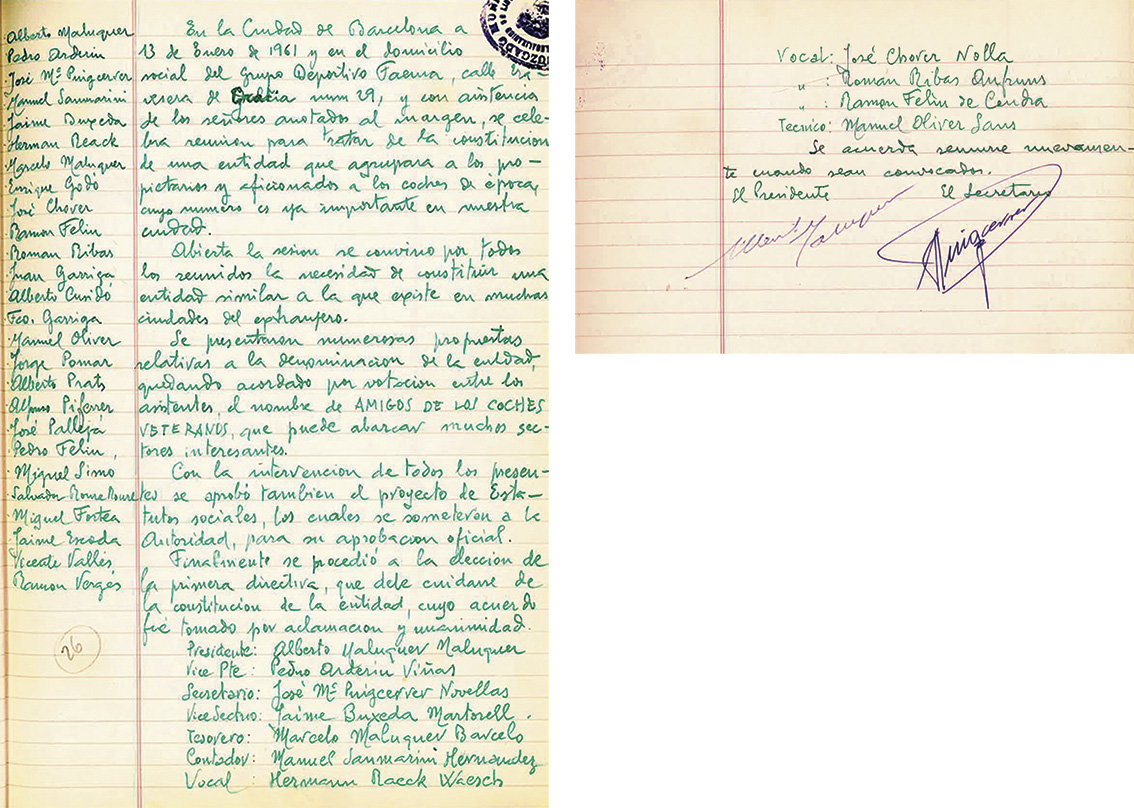 Alberto Maluquer
Pedro Arderiu
José Mª Puigcerver
Manuel Sanmartini
Jaime Buxeda
Herman Reack
Marcelo Maluquer
Enrique Godó
José Chover
Ramon Feliu
Roman Ribas
Juan Garriga
Alberto Cusidó
Fco. Garriga
Manuel Oliver
Jorge Pomar
Alberto Prats
Alfonso Piferrer
José Pallejá
Pedro Feliu,
Miguel Simo
Salvador Rome Roure
Miguel Fortea
Jaime Escoda
Vicente Vallés
Ramon Vergés
26
En la Ciudad de Barcelona a
13 de Enero de 1961 y en el domicilio
social del Grupo Deportivo Faema, calle tra
vesera de Gracia num 29, y con asistencia
de los señores anotados al margen, se cele-
bra reunion para tratar de la constitucion
de una entidad que agrupara a los pro-
pietarios y aficionados a los coches de época,
cuyo numero es ya importante en nuestra
ciudad.
Abierta la sesion se convino por todos
los reunidos la necesidad de constituir una
entidad similar a la que existe en muchas
ciudades del extranjero.
Se presentaron numerosas propuestas
relativas a la denominacion de la entidad,
quedando acordado por votacion entre los
asistentes, el nombre de AMIGOS DE LOS COCHES
VETERANOS, que puede abarcar muchos sec-
tores interesantes.
Con la intervencion de todos los presen-
tes se aprobó tambien el proyecto de Esta-
tutos sociales, los cuales se someteron a la
Autoridad, para su aprobacion oficial.
Finalmente se procedió a la eleccion de
la primera directiva, que debe cuidarse de
la constitucion de la entidad, cuyo acuerdo
fué tomado por aclamacion y unanimidad.
Presidente: Alberto Maluquer Maluquer
Vice Pte: Pedro Arderiu Viñas
Secretario: José Mª Puigcerver Novellas
Vice Sectrio: Jaime Buxeda Martorell.
Tesorero: Marcelo Maluquer Barcelo
Contador: Manuel Sanmartini Hernandez
Vocal: Hermann Raeck Waesch
Vocal: José Chover Nolla
" : Román Ribas
" : Ramon Feliu de Cendra
Tecnico: Manuel Oliver Sans
Se acuerda reunirse nuevamen-
te cuando sean convocados.
El Presidente El Secretario
Puigcerver